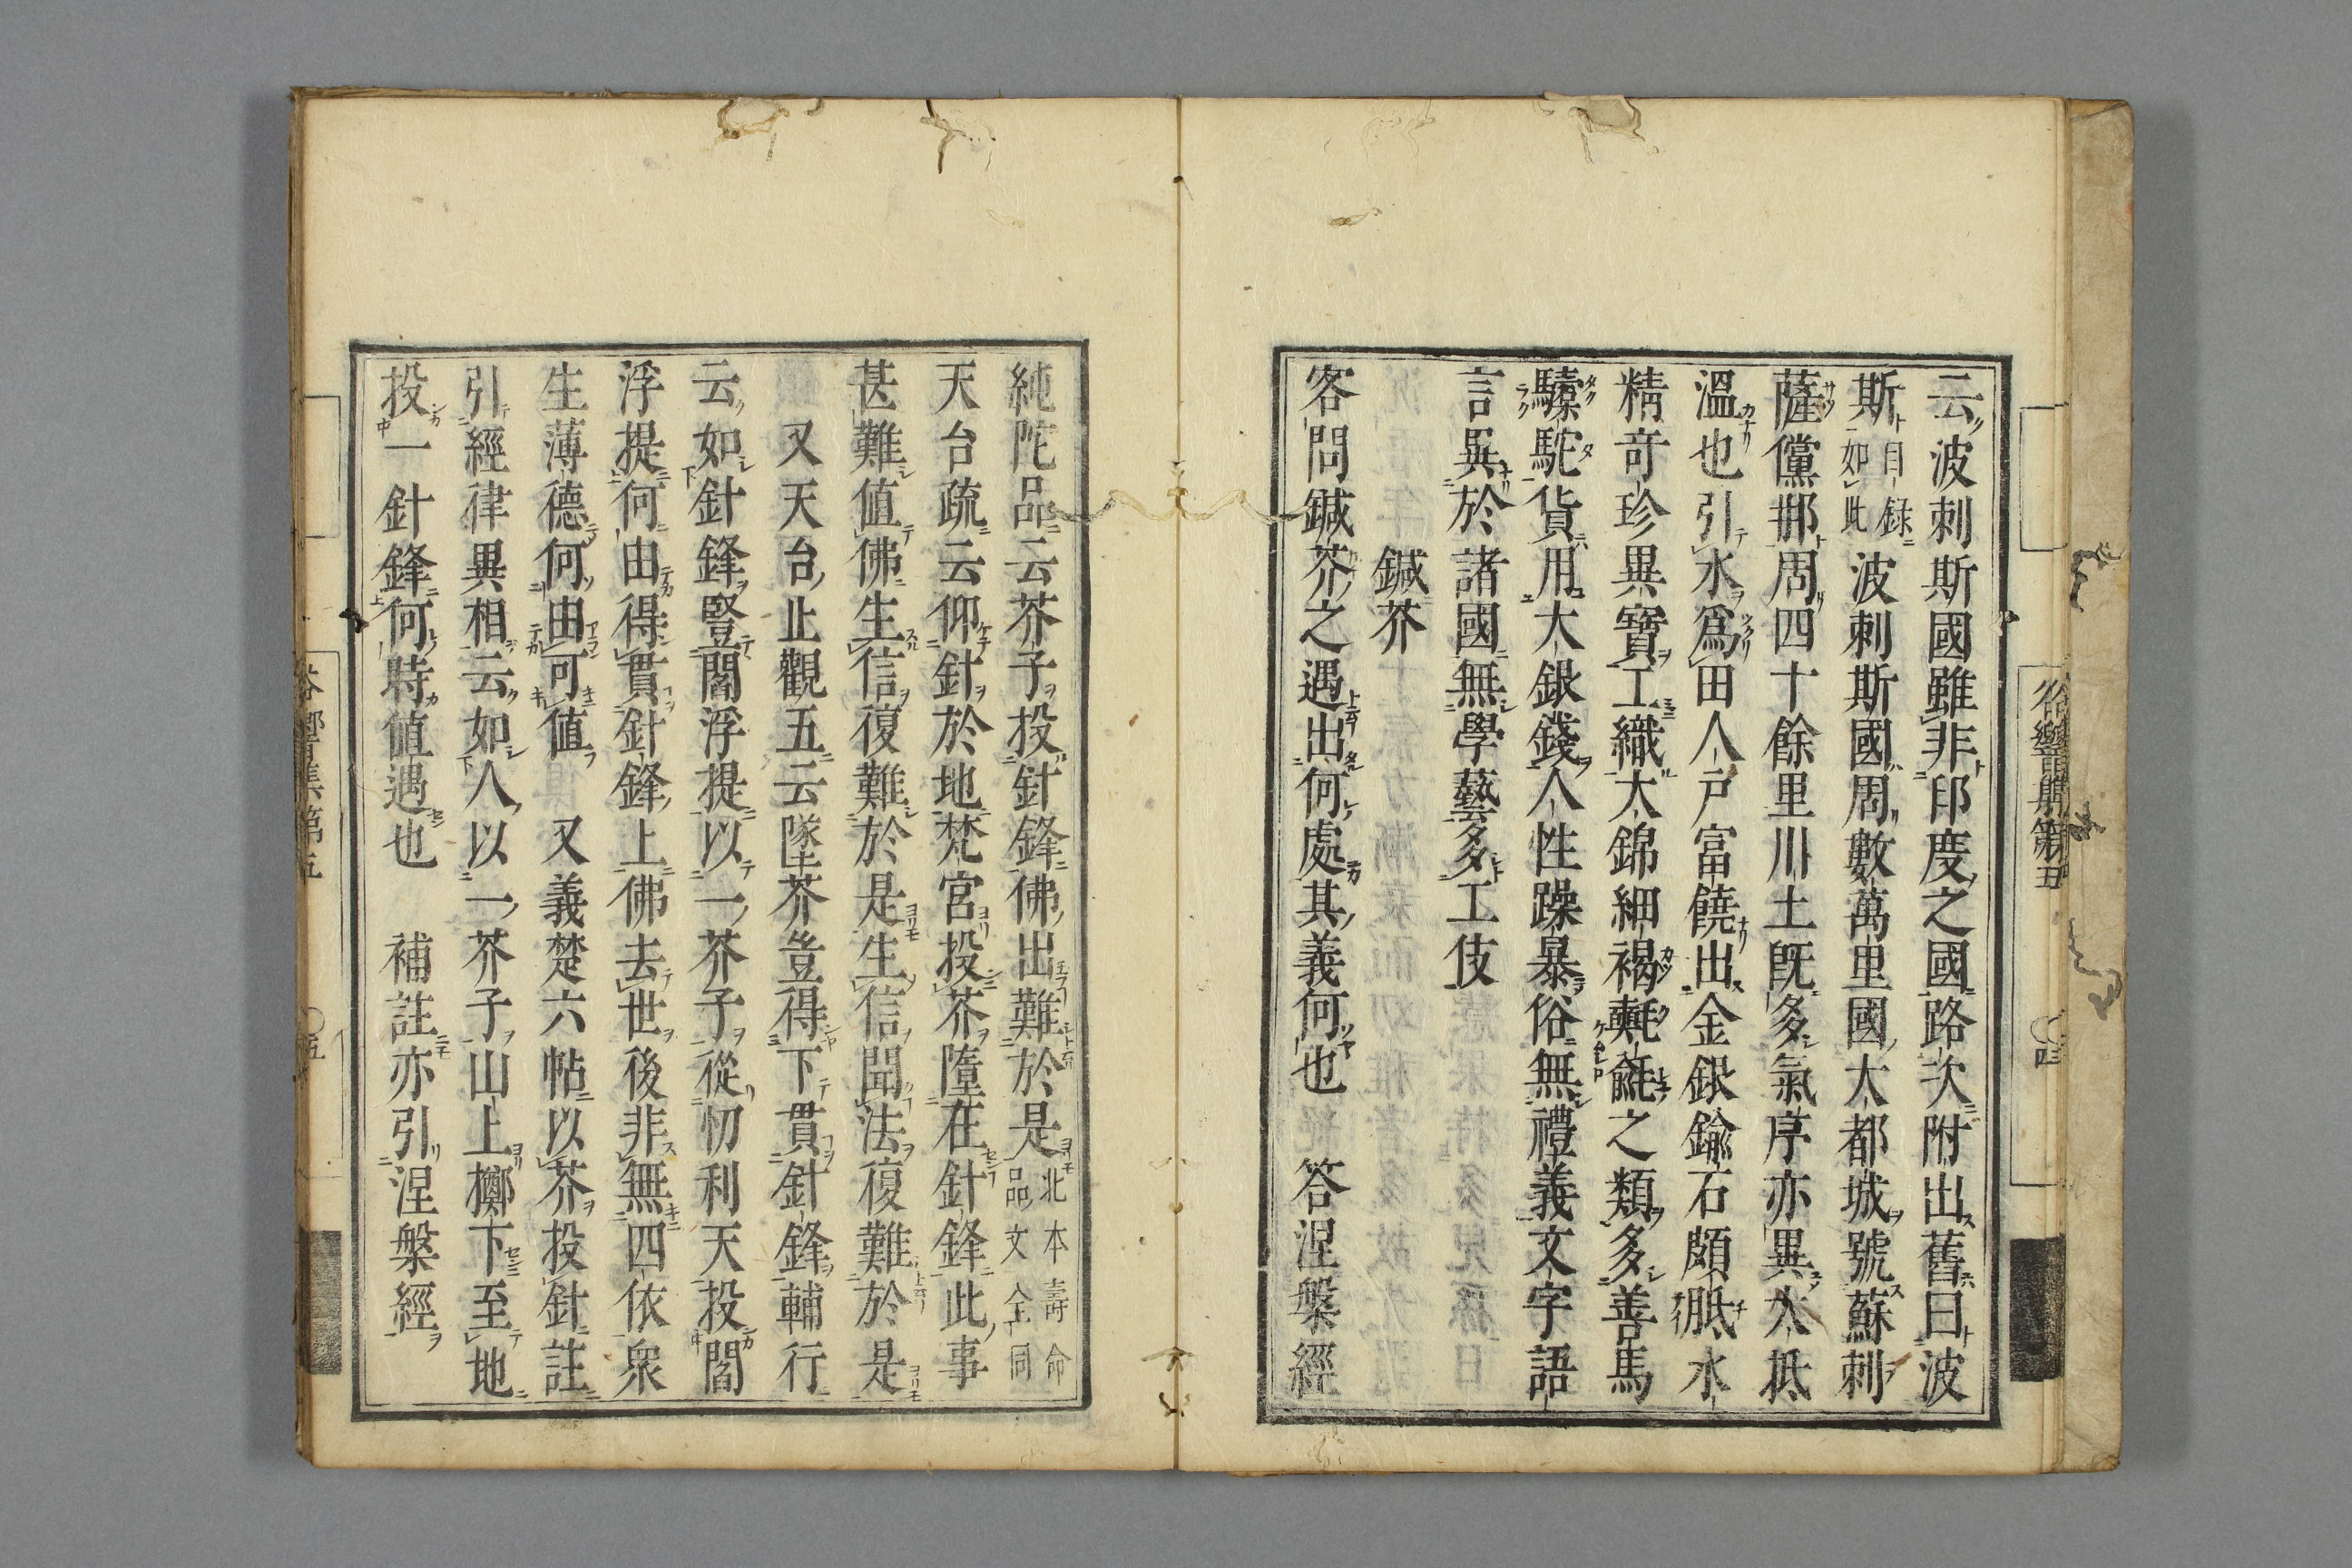 云波刺斯國雖非印度之國路次附出舊曰波
斯目錄如此波刺斯國周數萬里國大都城號蘇刺
薩儻那周四十餘里川土既多氣序亦異大抵
溫也引水爲田人戶富饒出金銀鍮石頗胝水
精奇珍異寶工織大錦細褐氍毹之類多善馬
駞貨用大銀錢人性躁暴俗無禮義文字語
言異於諸國無學藝多工伎
鍼芥
客問鍼芥之遇出何處其義何也　答涅槃經
谷響集第五
〇四
純陀品云芥子投針鋒佛出難於是北本壽命品文全同
天台疏云仰針於地梵宮投芥墮在針鋒此事
甚難值佛生信復難於是生信聞法復難於是
又天台止觀五云墜芥豈得下貫針鋒輔行
云如針鋒豎閻浮提以一芥子從忉利天投閻
浮提何由得貫針鋒上佛去世後非無四依衆
生薄德何由可值　又義楚六帖以芥投針註
引經律異相云如人以一芥子山上擲下至地
投一針鋒何時值遇也　補註亦引涅槃經
谷響集第五
〇五